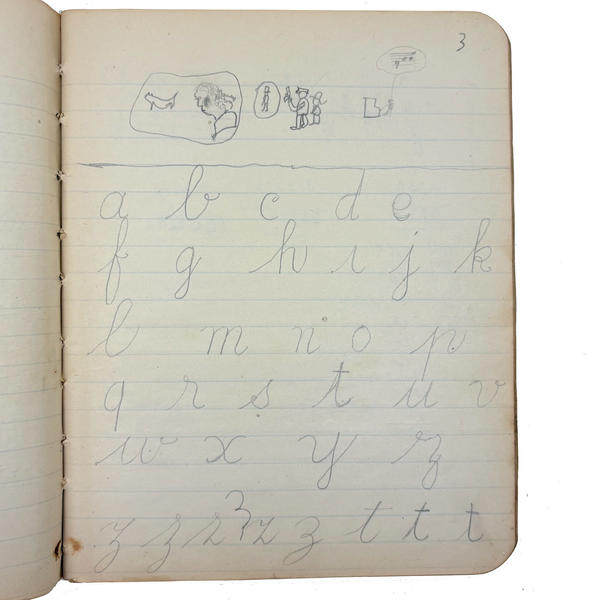 3
a b c d e
f g h i j k
l m n o p
q r s t u v
w x y z
z z z z z z t t t